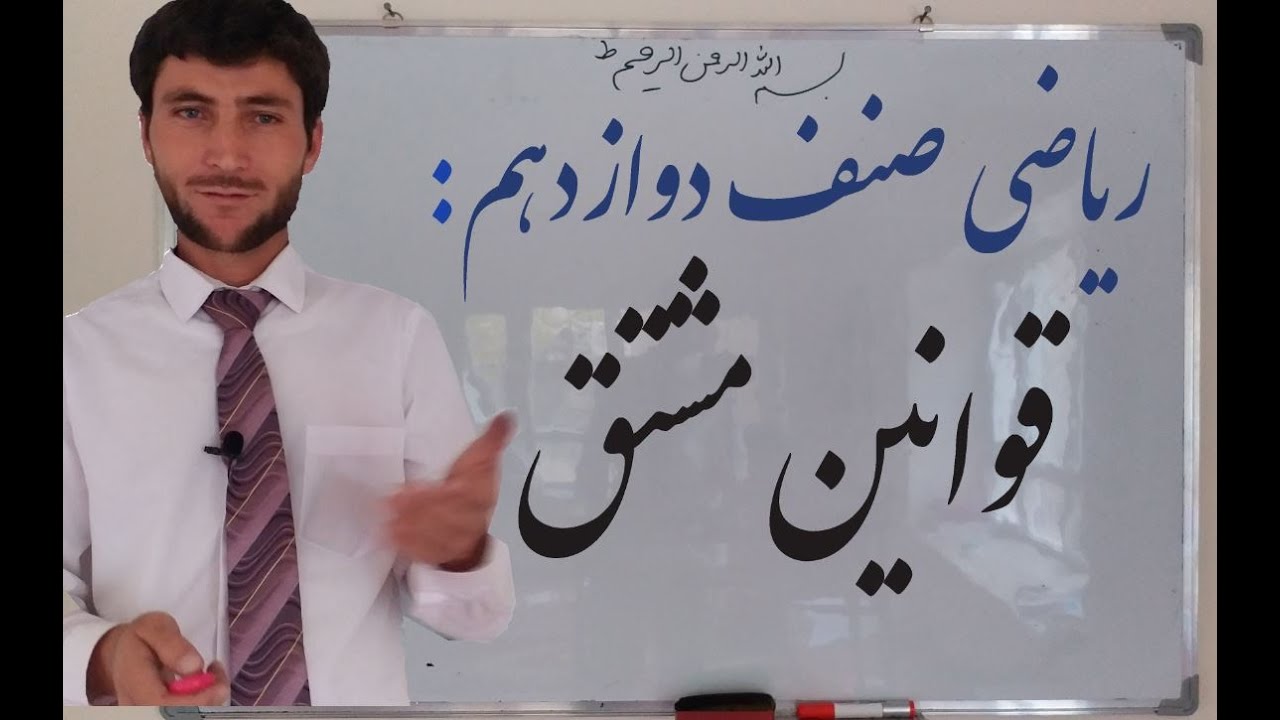 بسم الله الرحمن الرحیم ط
ریاضی صنف دوازدهم :
قوانین مشتق